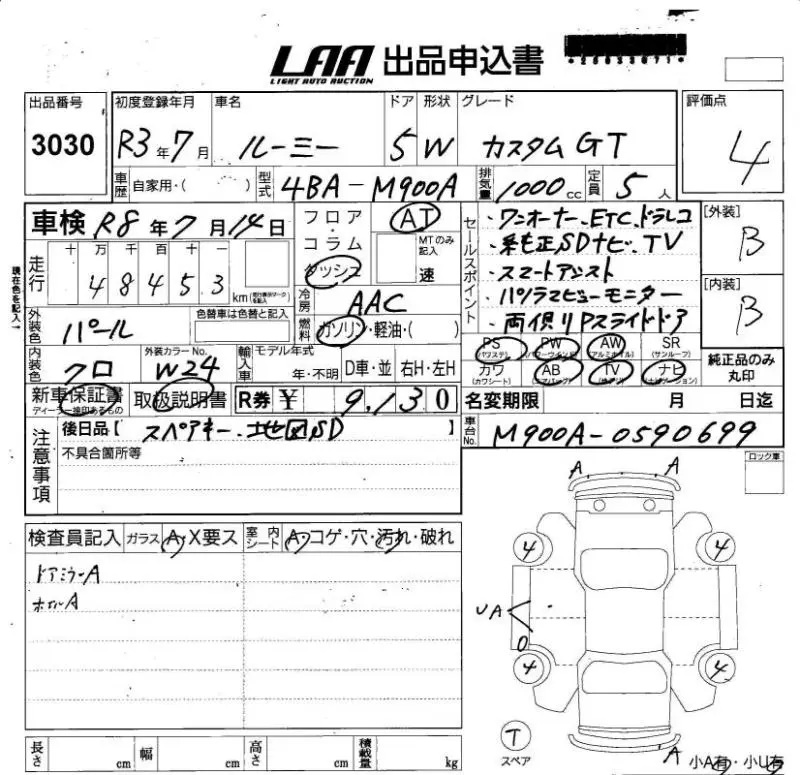 LAA 出品申込書
LIGHT AUTO AUCTION
出品番号 3030
初度登録年月 R3年7月
車名 ルーミー
ドア 5
形状 W
グレード カスタムGT
評価点 4
車歴 自家用・( )
型式 4BA-M900A
排気量 1000cc
定員 5人
車検 R8年7月14日
フロア・コラム ダッシュ
AT
MTのみ記入 速
走行 十万千百十一
48453 km
冷房 AAC
燃料 ガソリン・軽油・( )
セールスポイント
・ワンオーナー、ETC、ドラレコ
・純正SDナビ、TV
・スマートアシスト
・パノラマビューモニター
・両側リPスライドドア
[外装] B
[内装] B
現在色を記入
外装色 パール
色替車は色替と記入
内装色 クロ
外装カラーNo. W24
輸入車 モデル年式 年・不明
D車・並 右H・左H
PS (パワステ) PW (パワーウインド) AW (アルミホイル) SR (サンルーフ)
カワ (カワシート) AB (エアバッグ) TV ナビ (ナビゲーション)
純正品のみ丸印
新車保証書 取扱説明書
R券 ¥ 9,130
名変期限 月 日迄
注意事項
後日品【 スペアキー、地図SD 】
不具合箇所等
車台No. M900A-0590699
ロック車
検査員記入 ガラス A・X要ス 室内シート A・コゲ・穴・汚れ・破れ
ドアミラーA
ホイルA
A A
4 4
UA
4 4
T
スペア
A
小A有・小U有
長さ cm 幅 cm 高さ cm 積載量 kg